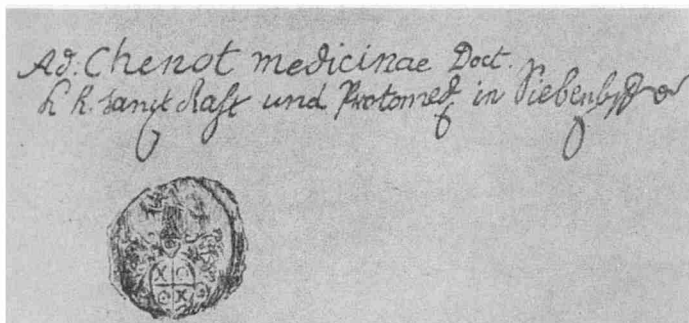 Ad: Chenot medicinae Doct.
k k. Sanct Raht und Protomed in Siebenb